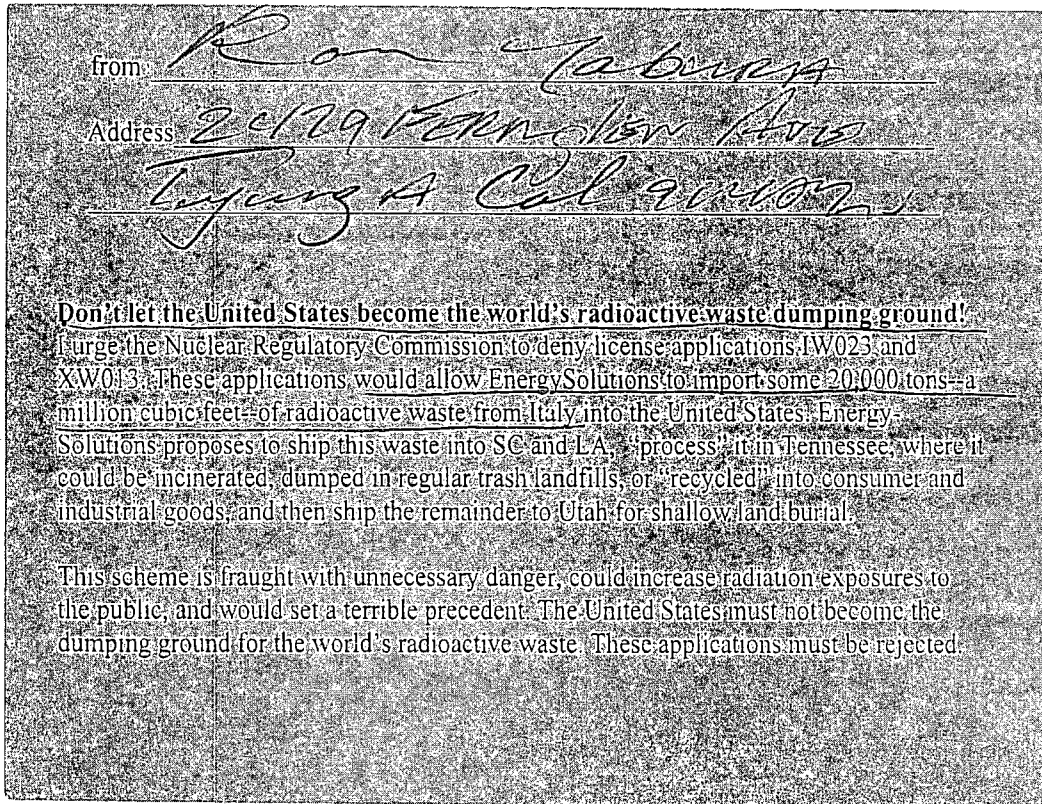 from Ron
Address Ave
Cal
Don't let the United States become the world's radioactive waste dumping ground!
I urge the Nuclear Regulatory Commission to deny license applications IW023 and
XW013. These applications would allow EnergySolutions to import some 20,000 tons--a
million cubic feet--of radioactive waste from Italy into the United States. Energy-
Solutions proposes to ship this waste into SC and LA, "process" it in Tennessee, where it
could be incinerated, dumped in regular trash landfills, or "recycled" into consumer and
industrial goods, and then ship the remainder to Utah for shallow land burial.
This scheme is fraught with unnecessary danger, could increase radiation exposures to
the public, and would set a terrible precedent. The United States must not become the
dumping ground for the world's radioactive waste. These applications must be rejected.